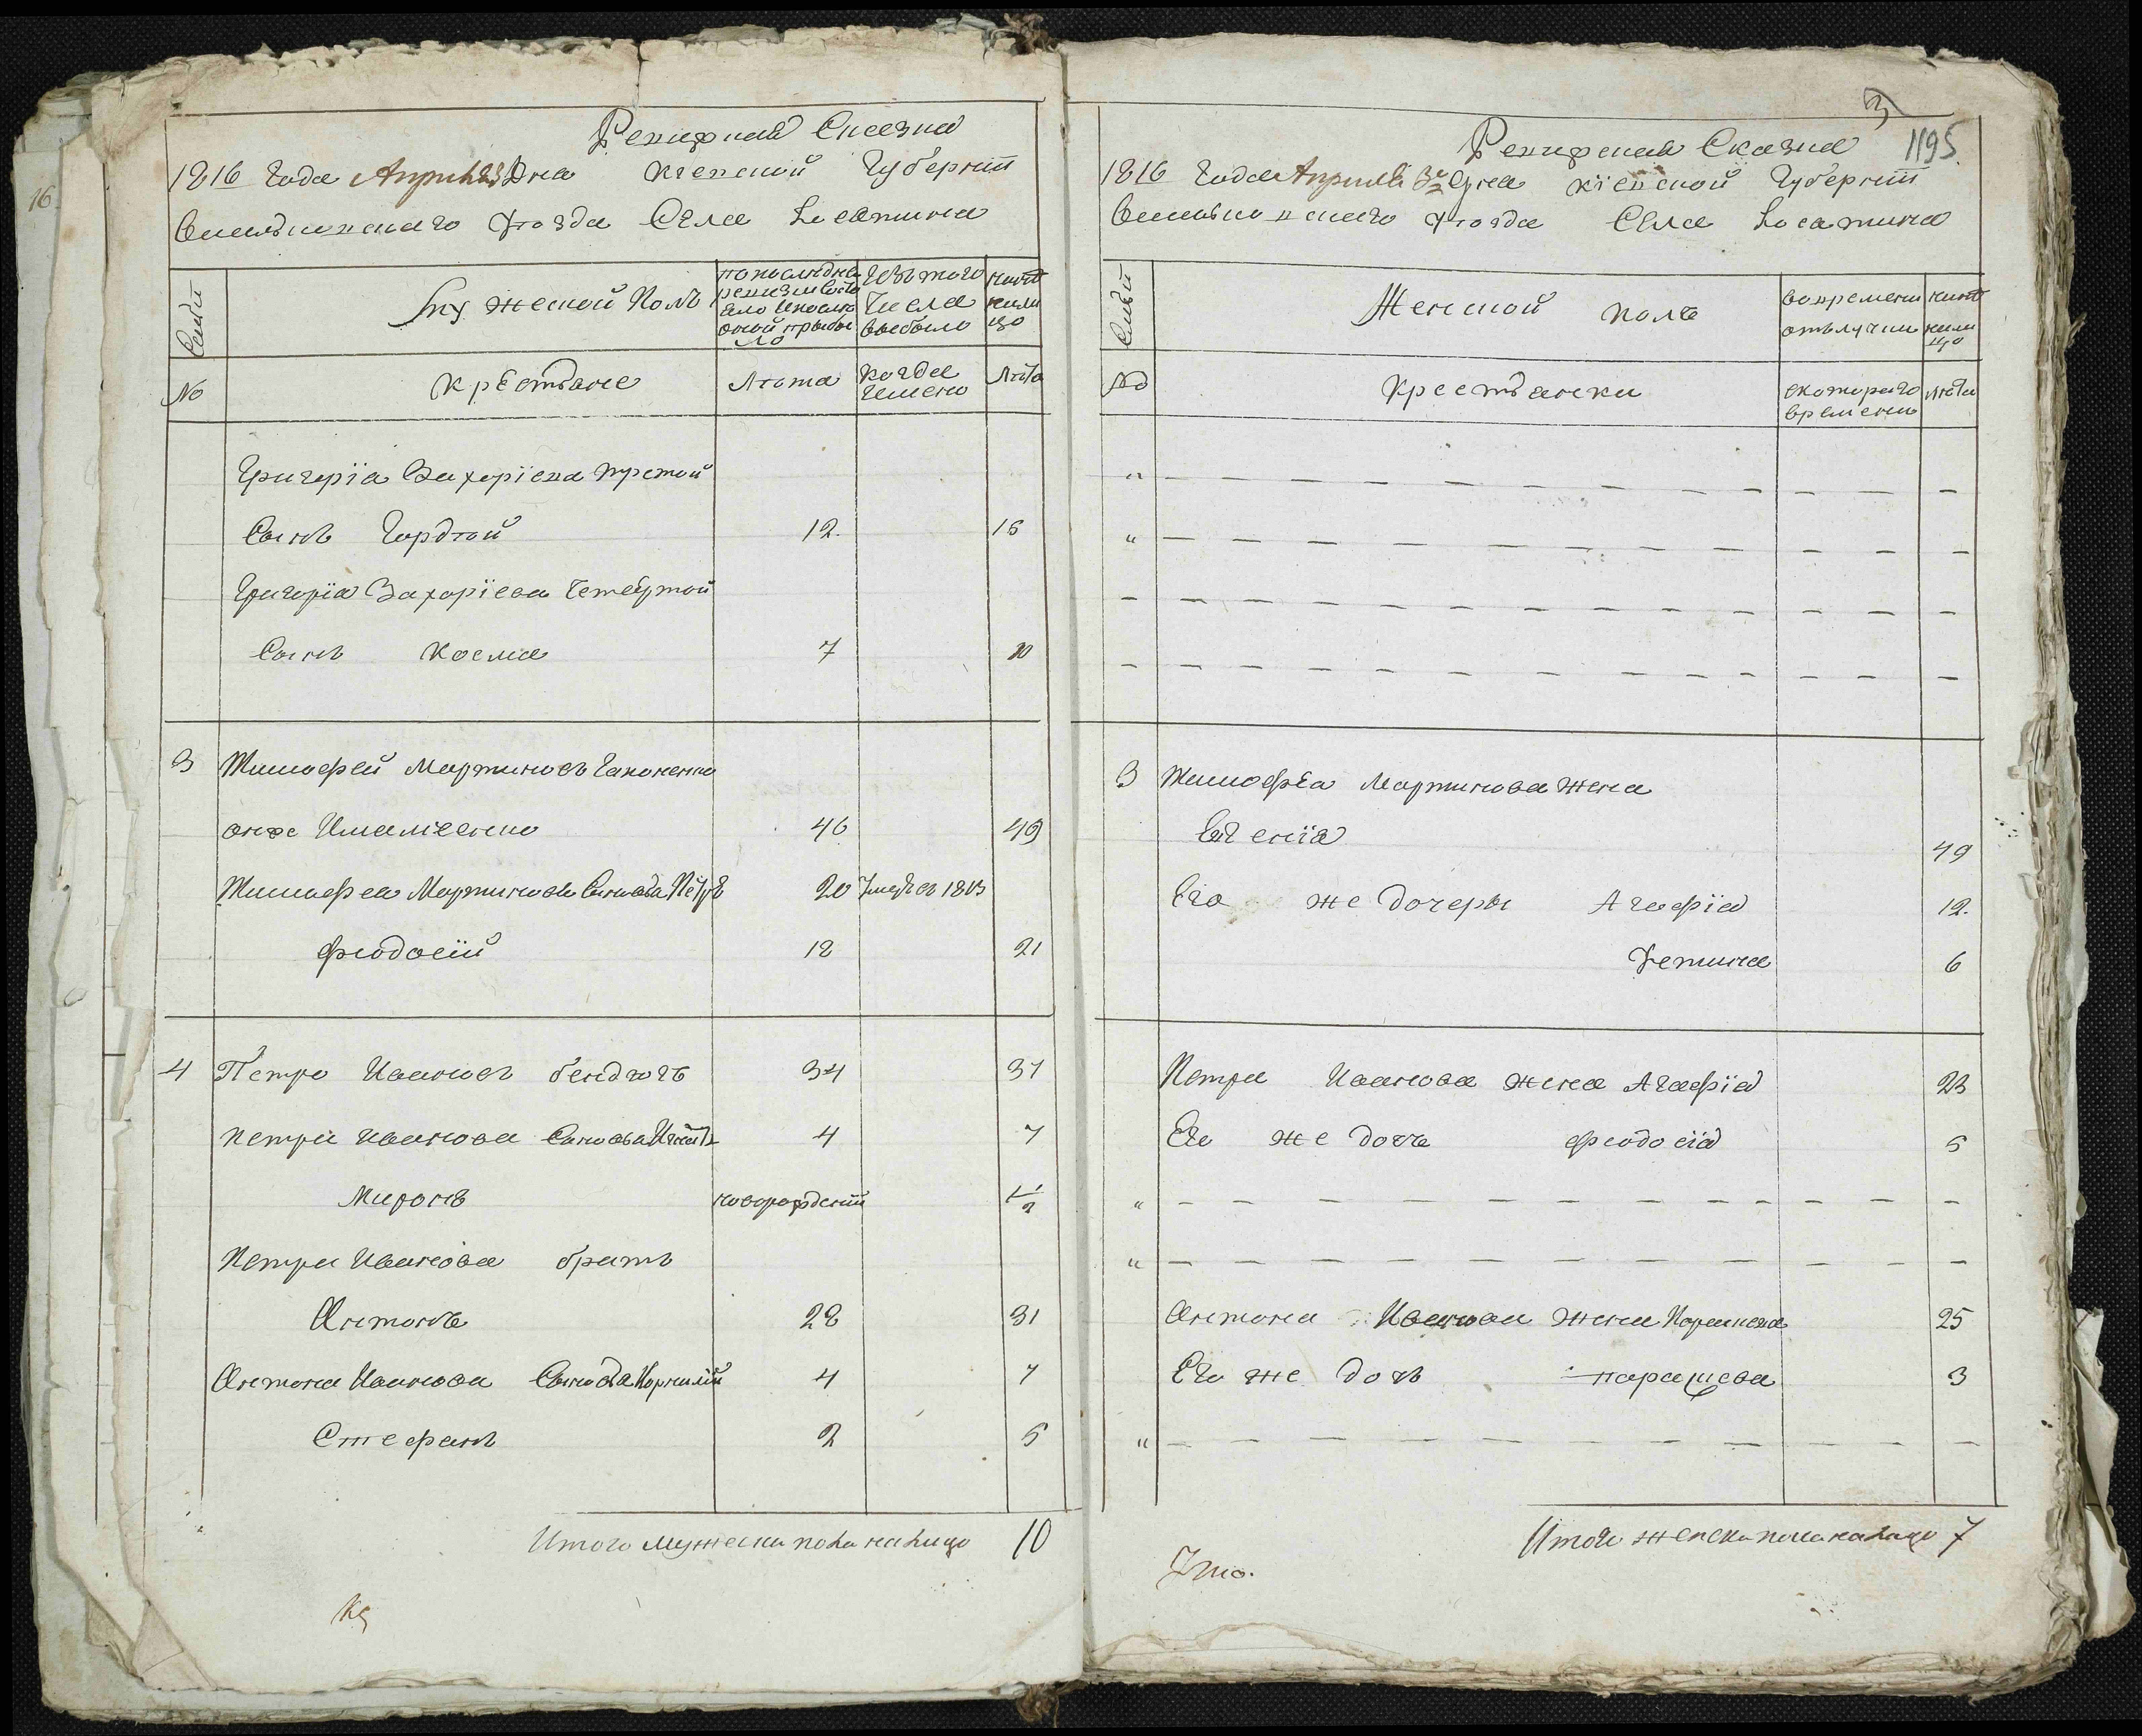 16
Ревизская Сказка
1816 Года Априля 3 Дня Кіевской Губерніи
Васильковскаго Уѣзда Села
Семьи
Мужеской Полъ
по последней ревизіи Состояло и после оной прибыло
Изъ того Числа выбыло
ныне на лицо
№
Крестьяне
Лѣта
когда имено
Лѣта
Григорія Захоріева третой
Сынъ Гордѣй 12. 15
Григорія Захоріева Четвертой
Сынъ Косма 7 10
3 Тимофей Мартиновъ Гапоненко
онже Имаміенко 46 49
Тимофея Мартинова Синовья Петръ 20 Умерѣ въ 1813
Феодосій 18 21
4 Петро Ивановъ бендюгъ 34 37
Петра Иванова Синовья 4 7
Миронъ новорожденій 1/2
Петра Иванова братъ
Антонъ 28 31
Антона Иванова Синовья Корнилій 4 7
Стефанъ 2 5
Итого мужеска пола налицо 10
3
1195
Ревизская Сказка
1816 Года Априля 3го Дня Кіевской Губерніи
Васильковскаго Уѣзда Села
Семьи
Женской полъ
во временной отълучки
ныне на лицо
№
Крестьянки
скоторого времени
лѣта
3 Тимофеа Мартинова жена
Евгенія 49
Его же дочеры Агафія 12.
Устина 6
Петра Иванова жена Агафія 23
Его же дочь феодосія 5
Антона Иванова жена Параскева 25
Его же дочь параскева 3
Итого женска пола налицо 7
Что.